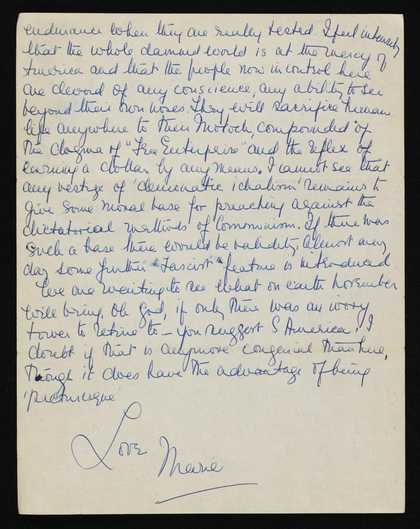 endurance when they are really tested. I feel intensely
that the whole damned world is at the mercy of
America and that the people now in control here
are devoid of any conscience, any ability to see
beyond their own noses. They will sacrifice human
life anywhere to their Moloch, compounded of
the dogma of "Free Enterprise" and the reflex of
earning a dollar by any means. I cannot see that
any vestige of 'democratic idealism' remains to
give some moral base for preaching against the
dictatorial methods of Communism. If there was
such a base there would be validity. Almost every
day some further "Fascist" feature is introduced
We are waiting to see what on earth November
will bring. Oh God, if only there was an ivory
tower to retire to – You suggest S America. I
doubt if that is anymore congenial than here,
though it does have the advantage of being
'picturesque'
Love
Marie